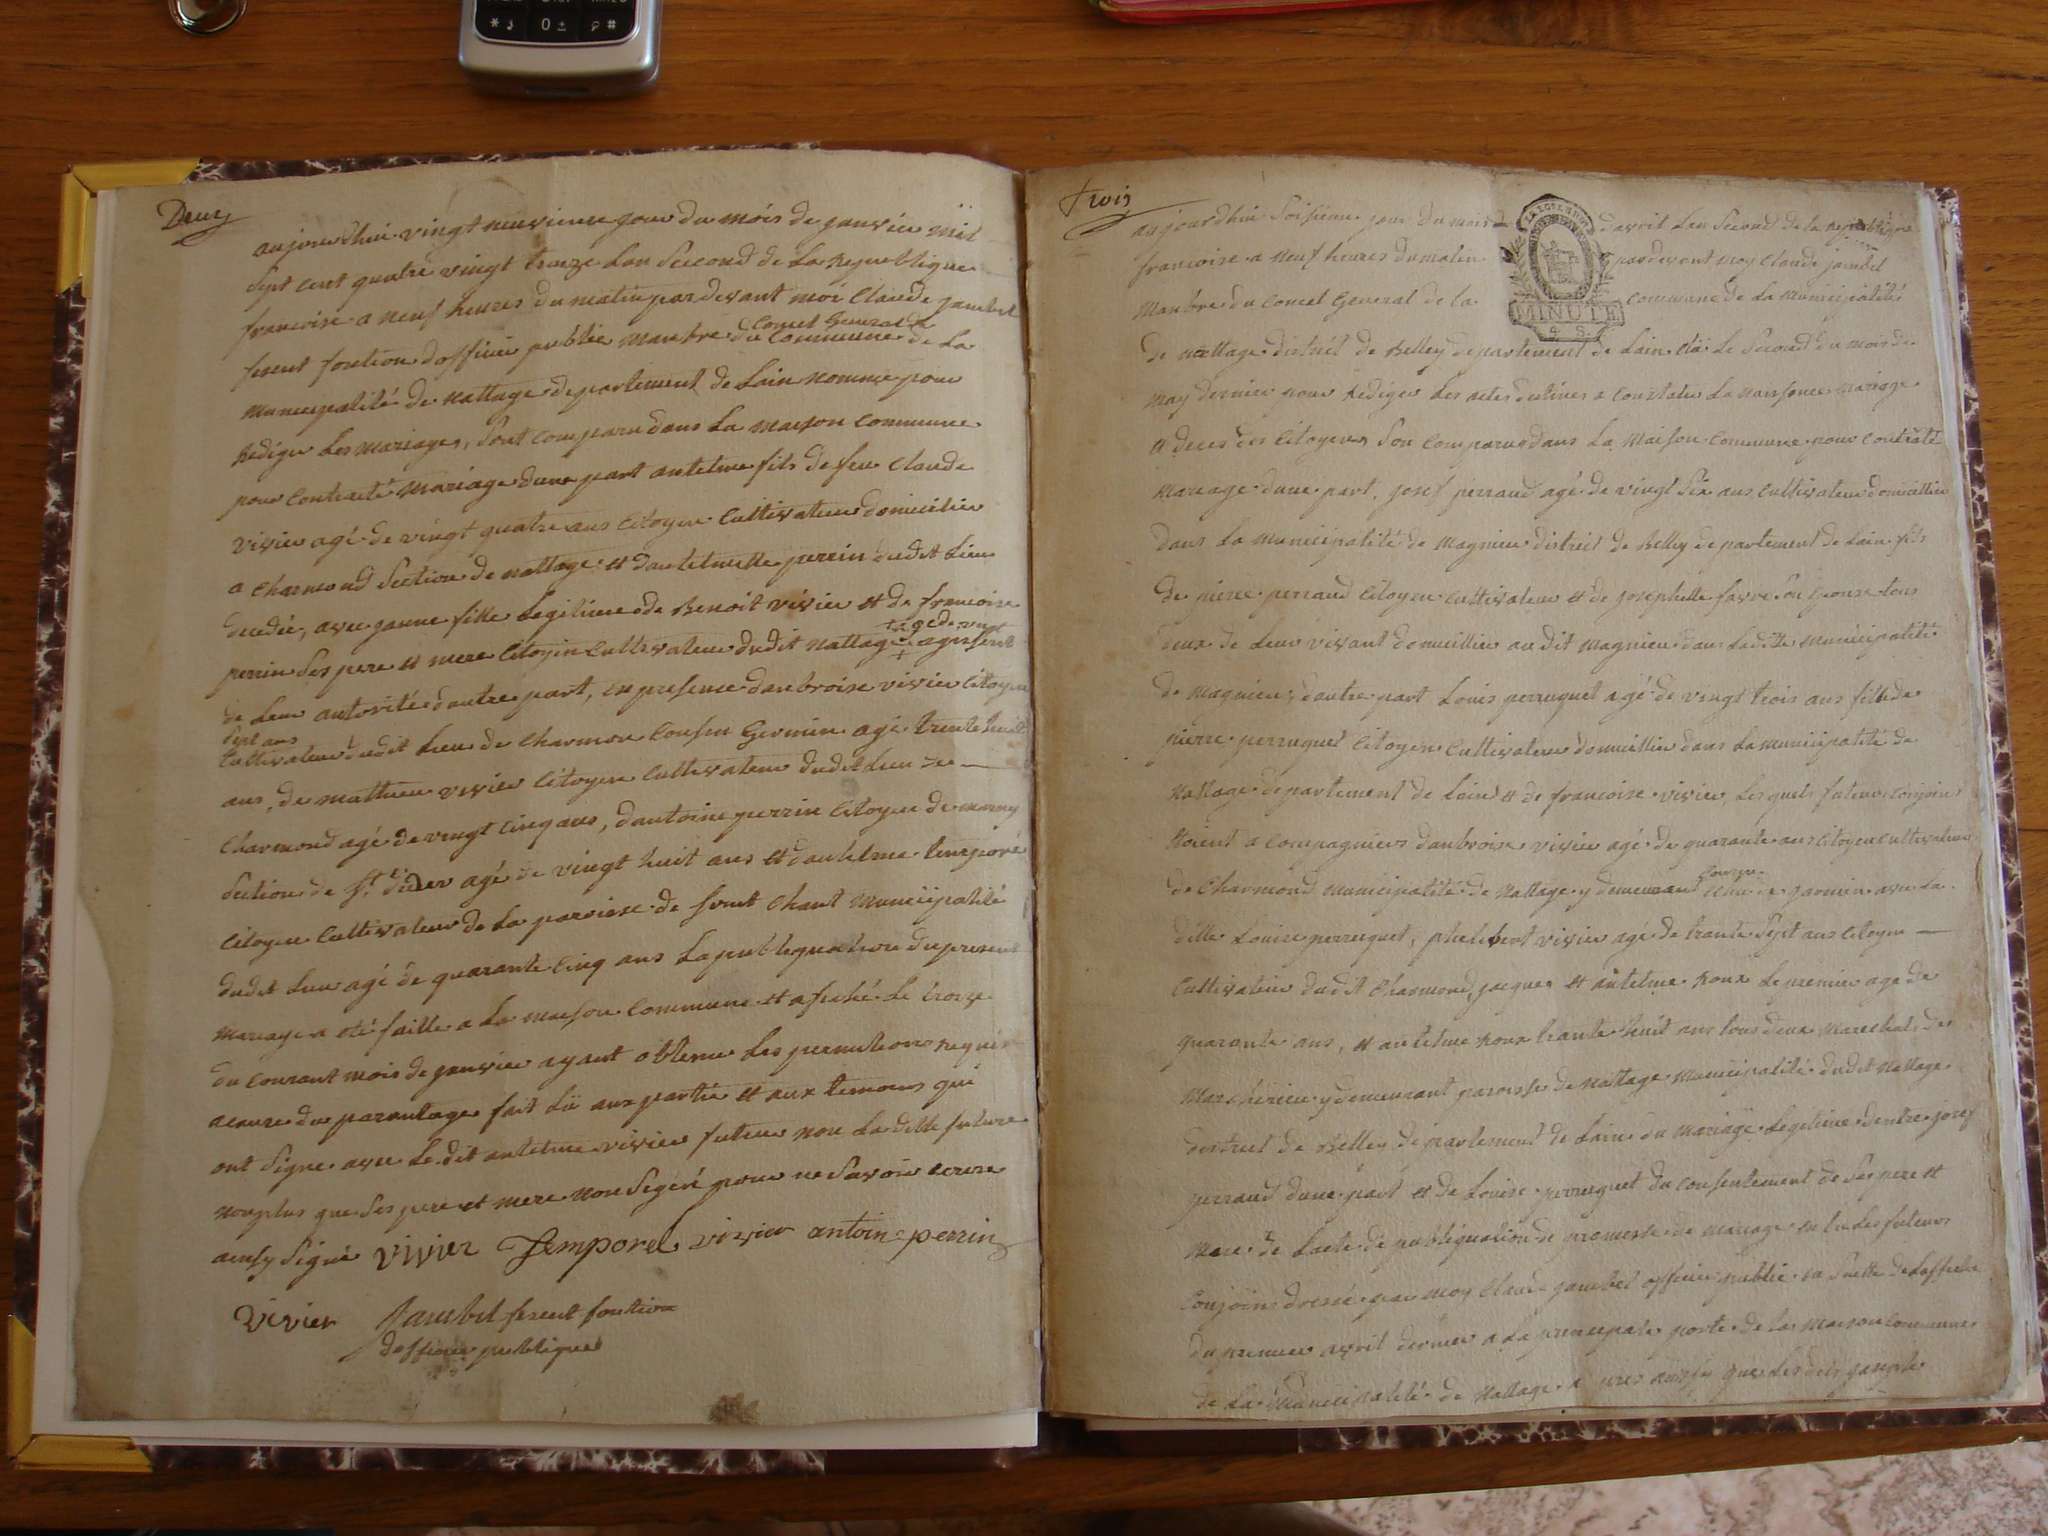 * 0 ± #
Deux
aujourdhui vingt neuvieme jour du mois de janvier mil
sept cent quatre vingt treize Lan Second de La Republique
francoise a neuf heures du matin par devant moi Claude jambet
fesent fontion dofficier publie manbre du Concel General de la Commune de La
municipalité de nattage departement de Lain nomme pour
Rediger Les mariages, Sont comparu dans La maison commune
pour contracté mariage dune part antelme fils de feu Claude
vivier agé de vingt quatre ans Citoyen Cultivateur domicilier
a Charmond Section de nattage et dantelmette perrin dudit Lieu
decedée, avec janne fille Legitime de Benoit vivier et de francoise
perrin Ses pere et mere Citoyen Cultivateur dudit nattage + agé de vingt + agissent
sept ans
de Leur autorité dautre part, en presence danbroise vivier Citoyen
Cultivateur dudit Lieu de Charmon Cousin Germin agé trente huit
ans, de mathieu vivier Citoyen Cultivateur dudit Lieu de
Charmond agé de vingt cinq ans, dantoine perrin Citoyen de
Section de St didier agé de vingt huit ans et dantelme temporé
Citoyen Cultivateur de La paroisse de Chant Municipalité
dudit Lieu agé de quarante cinq ans La publiquation du present
mariage a été faitte a La maison commune et afiché Le treize
du courant mois de janvier ayant obtenu Les permitions
acause du parantage fait Lü aux partie et aux temoins qui
ont Signe avec Le dit antelme vivier futeur non La ditte future
nonplus que Ses pere et mere non Signé pour ne Savoir ecrire
ainsy Signé vivier Temporel vivier antoine perrin
vivier Jambet fesent fontion
dofficier publique
Trois
aujourdhui Sisieme jour du mois d davril Lan Second de la Republique
francoise a neuf heures du matin pardevent moy Claude jambet
Manbre du Concel General de la commune de La Municipalité
MINUTE
4. S.
de nattage district de Belley departement de Lain Le Second du mois de
may dernier pour Rediger Les actes destinés a constater La naissance mariage
et deces des Citoyens Son comparus dans La Maison commune pour contraté
Mariage dune part, josef perraud agé de vingt Six ans Cultivateur domicillier
dans La municipalité de Magnieu district de Belley departement de Lain fils
de pierre perraud Citoyen Cultivateur et de josephette favre Son Epouse tous
deux de Leur vivant domicillier au dit Magnieu dans Laditte municipalité
de Magnieu, dautre part Louis perruquet agé de vingt trois ans fille de
pierre perruquet Citoyen Cultivateur domicillier dans La municipalité de
Nattage departement de Lain et de francoise vivier, Les quels futeur conjoins
Etoient acompagniers danbroise vivier agé de quarante ans Citoyen Cultivateur
de Charmond municipalité de Nattage y demeurant Couzin germin avec La
ditte Louise perruquet, philibert vivier agé de trante Sept ans Citoyen
Cultivateur dudit Charmond, jacques et antelme Roux Le premier age de
quarante ans, et antelme Roux trante huit ans tous deux Marechal de
y demeurant paroisse de Nattage Municipalité dudit Nattage
district de Belley departement de Lain du Mariage Legitime dentre josef
perraud dune part et de Louise perruquet du consentement de Ses pere et
Mere de Lacte de publiquation de promesse de mariage entre Les futeurs
Conjoins dressé par moy Claude jambet officier publie La Suitte de Laffiche
du premier avril dernier a La principale porte de La maison commune
de La Municipalité de Nattage a pres que Les dits joseph